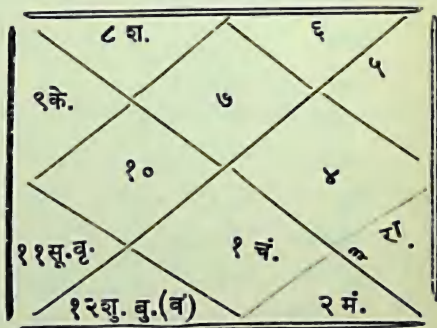 ८ श. ६
५
९के. ७
१० ४
३ रा.
११सू.वृ. १ चं.
१२शु. बु.(व) २ मं.